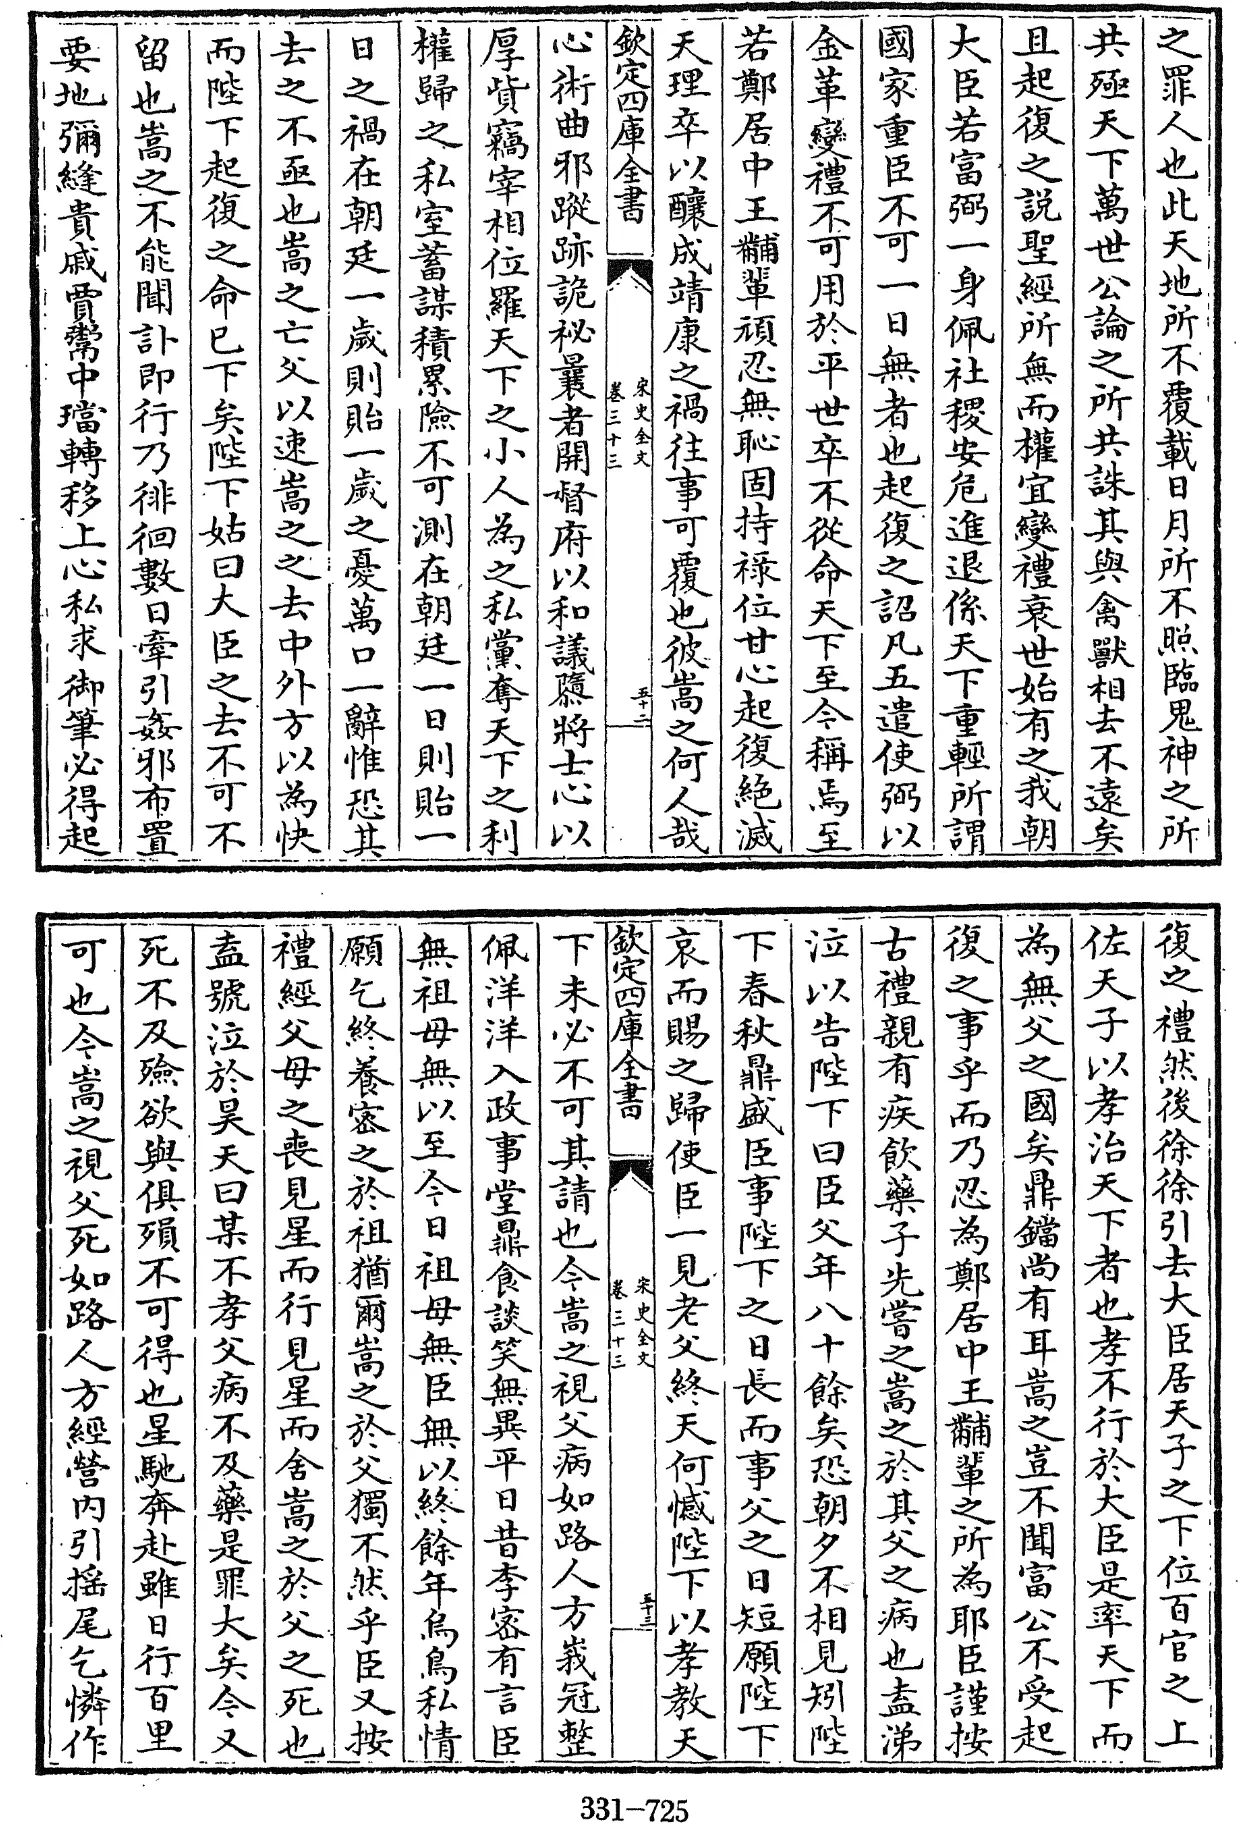 之罪人也此天地所不覆載日月所不照臨鬼神之所
共殛天下萬世公論之所共誅其與禽獸相去不遠矣
且起復之說聖經所無而權宜變禮衰世始有之我朝
大臣若富弼一身佩社稷安危進退係天下重輕所謂
國家重臣不可一日無者也起復之詔凡五遣使弼以
金革變禮不可用於平世卒不從命天下至今稱焉至
若鄭居中王黼輩頑忍無恥固持祿位甘心起復絶滅
天理卒以釀成靖康之禍往事可覆也彼嵩之何人哉
欽定四庫全書
宋史全文
卷三十三
五十二
心術曲邪蹤跡詭秘曩者開督府以和議隳將士心以
厚貲竊宰相位羅天下之小人為之私黨奪天下之利
權歸之私室蓄謀積累險不可測在朝廷一日則貽一
日之禍在朝廷一歲則貽一歲之憂萬口一辭惟恐其
去之不亟也嵩之亡父以速嵩之之去中外方以為快
而陛下起復之命已下矣陛下姑曰大臣之去不可不
留也嵩之不能聞訃即行乃徘徊數日牽引姦邪布置
要地彌縫貴戚賈鬻中璫轉移上心私求御筆必得起
復之禮然後徐徐引去大臣居天子之下位百官之上
佐天子以孝治天下者也孝不行於大臣是率天下而
為無父之國矣鼎鐺尚有耳嵩之豈不聞富公不受起
復之事乎而乃忍為鄭居中王黼輩之所為耶臣謹按
古禮親有疾飲藥子先嘗之嵩之於其父之病也盍涕
泣以告陛下曰臣父年八十餘矣恐朝夕不相見矧陛
下春秋鼎盛臣事陛下之日長而事父之日短願陛下
哀而賜之歸使臣一見老父終天何憾陛下以孝教天
欽定四庫全書
宋史全文
卷三十三
五十三
下未必不可其請也今嵩之視父病如路人方峩冠整
佩洋洋入政事堂鼎食談笑無異平日昔李密有言臣
無祖母無以至今日祖母無臣無以終餘年烏鳥私情
願乞終養密之於祖猶爾嵩之於父獨不然乎臣又按
禮經父母之喪見星而行見星而舍嵩之於父之死也
盍號泣於昊天曰某不孝父病不及藥是罪大矣今又
死不及殮欲與俱殞不可得也星馳奔赴雖日行百里
可也今嵩之視父死如路人方經營內引搖尾乞憐作
331-725